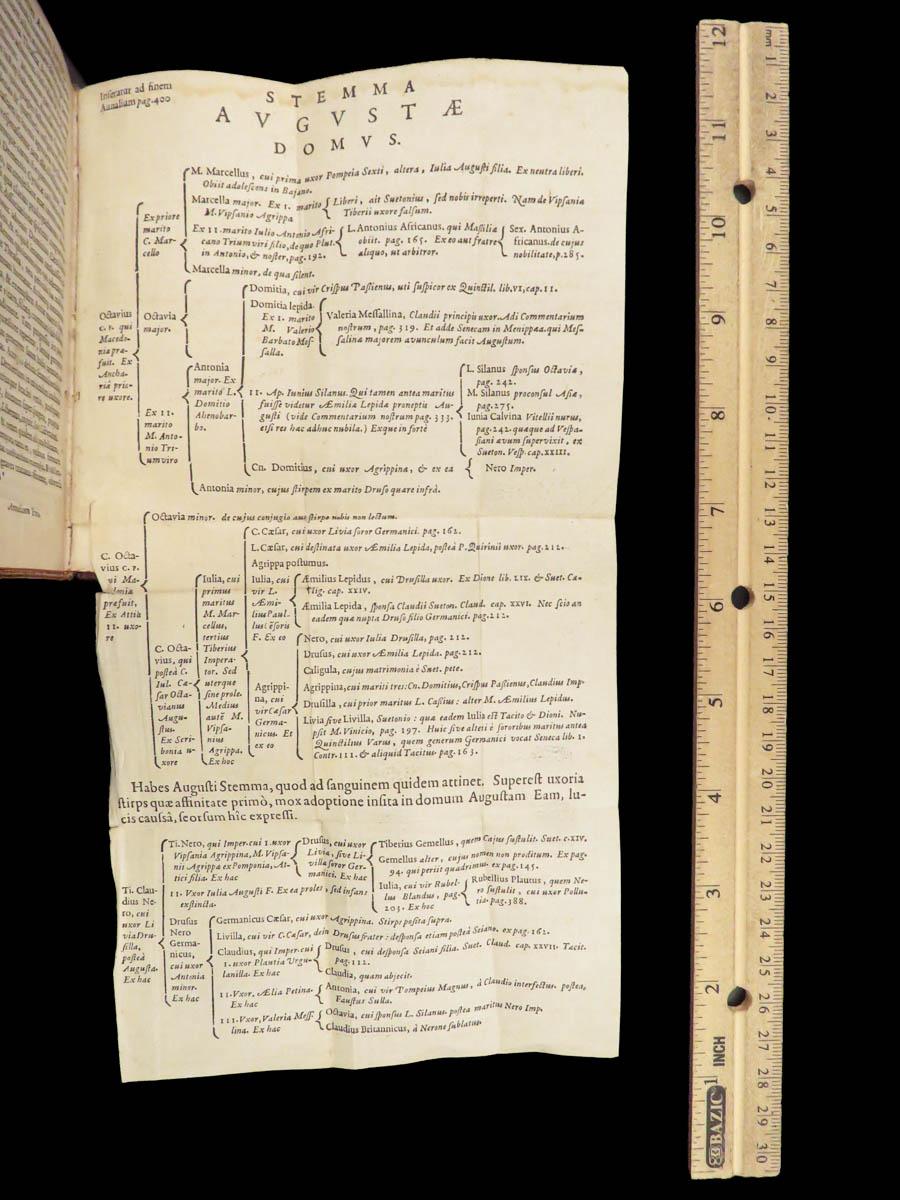 Inseratur ad finem
Annalium pag. 400
STEMMA
AVGVSTÆ
DOMVS.
M. Marcellus, cui prima uxor Pompeia Sexti, altera, Iulia Augusti filia. Ex neutra liberi.
Obiit adolescens in Bajano.
Marcella major. Ex I. marito
M. Vipsanio Agrippa
Liberi, ait Suetonius, sed nobis irreperti. Nam de Vipsania
Tiberii uxore falsum.
Ex priore
marito
C. Mar-
cello
Ex II. marito Iulio Antonio Afri-
cano Triumviri filio, de quo Plut.
in Antonio, & noster, pag. 192.
L. Antonius Africanus. qui Massiliæ
obiit. pag. 165. Ex eo aut fratre
aliquo, ut arbitror.
Sex. Antonius A-
fricanus. de cujus
nobilitate, p. 285.
Marcella minor, de qua silent.
Octavius
c. F. qui
Macedo-
niæ præ-
fuit. Ex
Ancha-
riâ prio-
re uxore.
Octavia
major.
Domitia, cui vir Crispus Passienus, uti suspicor ex Quinctil. lib. VI, cap. II.
Domitia lepida.
Ex I. marito
M. Valerio
Barbato Mes-
salla.
Valeria Messallina, Claudii principis uxor. Adi Commentarium
nostrum, pag. 319. Et adde Senecam in Menippæa. qui Mes-
salinæ majorem avunculum facit Augustum.
Ex II.
marito
M. Anto-
nio Tri-
umviro
Antonia
major. Ex
marito L.
Domitio
Ahenobar-
bo.
II. Ap. Iunius Silanus. Qui tamen antea maritus
fuisse videtur Æmiliæ Lepidæ proneptis Au-
gusti (vide Commentarium nostrum pag. 333.
etsi res hac adhuc nubila.) Ex que in forte
L. Silanus sponsus Octaviæ,
pag. 242.
M. Silanus proconsul Asiæ,
pag. 275.
Iunia Calvina Vitellii nurus,
pag. 242. quæque ad Vespa-
siani ævum supervixit, ex
Sueton. Vesp. cap. XXIII.
Cn. Domitius, cui uxor Agrippina, & ex ea
Nero Imper.
Antonia minor, cujus stirpem ex marito Druso quare infrà.
Octavia minor. de cujus conjugio aut stirpe nobis non lectum.
C. Octa-
vius C. F.
qui Ma-
donia
præfuit,
Ex Attiâ
II. uxo-
re
C. Octa-
vius, qui
posteà C.
Iul. Cæ-
sar Octa-
vianus
Augu-
stus.
Ex Scri-
bonia u-
xore
Iulia, cui
primus
maritus
M. Mar-
cellus,
tertius
Tiberius
Impera-
tor. Sed
uterque
sine prole.
Medius
autē M.
Vipsa-
nius
Agrippa.
Ex hoc
C. Cæsar, cui uxor Livia soror Germanici. pag. 162.
L. Cæsar, cui destinata uxor Æmilia Lepida, posteà P. Quirinii uxor. pag. 212.
Agrippa postumus.
Iulia, cui
vir L.
Æmi-
lius Paul-
lus cēsoris
F. Ex eo
Æmilius Lepidus, cui Drusilla uxor. Ex Dione lib. LIX. & Suet. Ca-
lig. cap. XXIV.
Æmilia Lepida, sponsa Claudii Sueton. Claud. cap. XXVI. Nec scio an
eadem quæ nupta Druso filio Germanici. pag. 212.
Agrippi-
na, cui
vir Cæsar
Germa-
nicus. Et
ex eo
Nero, cui uxor Iulia Drusilla, pag. 212.
Drusus, cui uxor Æmilia Lepida. pag. 212.
Caligula, cujus matrimonia è Suet. pete.
Agrippina, cui mariti tres: Cn. Domitius, Crispus Passienus, Claudius Imp.
Drusilla, cui prior maritus L. Cassius: alter M. Æmilius Lepidus.
Livia sive Livilla, Suetonio: quæ eadem Iulia est Tacito & Dioni. Nu-
psit M. Vinicio, pag. 197. Huic sive alteri è sororibus maritus antea
Quinctilius Varus, quem generum Germanici vocat Seneca lib. I.
Contr. III. & aliquid Tacitus. pag. 163.
Habes Augusti Stemma, quod ad sanguinem quidem attinet. Superest uxoria
stirps quæ affinitate primò, mox adoptione insita in domum Augustam Eam, lu-
cis causâ, seorsum hic expressi.
Ti. Clau-
dius Ne-
ro, cui
uxor Li
via Dru-
silla,
posteà
Augusta.
Ex hac
Ti. Nero, qui Imper. cui I. uxor
Vipsania Agrippina, M. Vipsa-
nii Agrippæ ex Pomponia, At-
tici filia. Ex hac
Drusus, cui uxor
Livia, sive Li-
villa soror Ger-
manici. Ex hac
Tiberius Gemellus, quem Cajus sustulit. Suet. C. XIV.
Gemellus alter, cujus nomen non proditum. Ex pag.
94. qui periit quadrimus. ex pag. 145.
Iulia, cui vir Rubel-
lius Blandus, pag.
203. Ex hoc
Rubellius Plautus, quem Ne-
ro sustulit, cui uxor Pollu-
tia. pag. 388.
II. Vxor Iulia Augusti F. Ex ea proles, sed infans
exstincta.
Drusus
Nero
Germa-
nicus,
cui uxor
Antonia
minor.
Ex hac
Germanicus Cæsar, cui uxor Agrippina. Stirps posita supra.
Livilla, cui vir C. Cæsar, dein Drusus frater: desponsa etiam posteà Seiano. ex pag. 162.
Claudius, qui Imper. cui
I. uxor Plautia Urgu-
lanilla. Ex hac
Drusus, cui desponsa Seiani filia. Suet. Claud. cap. XXVII. Tacit.
pag. 112.
Claudia, quam abjecit.
II. Vxor. Ælia Petina.
Ex hac
Antonia, cui vir Pompeius Magnus, à Claudio interfectus. postea,
Faustus Sulla.
III. Vxor, Valeria Mess.
lina. Ex hac
Octavia, cui sponsus L. Silanus. postea maritus Nero Imp.
Claudius Britannicus, à Nerone sublatus.
12
11
10
9
8
7
6
5
4
3
2
1
INCH
BAZIC
mm
1
2
3
4
5
6
7
8
9
10
11
12
13
14
15
16
17
18
19
20
21
22
23
24
25
26
27
28
29
30